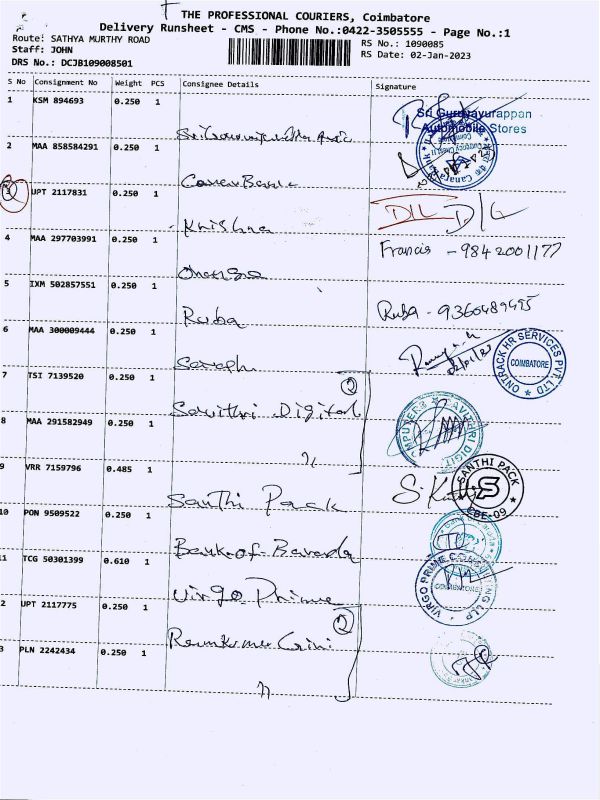 THE PROFESSIONAL COURIERS, Coimbatore
Delivery Runsheet - CMS - Phone No.:0422-3505555 - Page No.:1
Route: SATHYA MURTHY ROAD
Staff: JOHN
DRS No.: DCJB109008501
RS No.: 1090085
RS Date: 02-Jan-2023
S No Consignment No Weight PCS Consignee Details Signature
1 KSM 894693 0.250 1
Sri Guruvayurappan
Automobile Stores
2 MAA 858584291 0.250 1
Canara Bank
3 UPT 2117831 0.250 1 Krishna DIL D/L
4 MAA 297703991 0.250 1 Francis - 9842001177
5 IXM 502857551 0.250 1 Ruba Ruba - 9360489495
6 MAA 300009444 0.250 1
ONTRACK HR SERVICES PVT LTD
COIMBATORE
7 TSI 7139520 0.250 1 Savithri Digital 2
8 MAA 291582949 0.250 1 "
9 VRR 7159796 0.485 1 Santhi Pack
SANTHI PACK
S
CBE-09
10 PON 9509522 0.250 1 Bank of Baroda
11 TCG 50301399 0.610 1 Virgo Prime
VIRGO PRIME
COIMBATORE
2 UPT 2117775 0.250 1 2
3 PLN 2242434 0.250 1 "